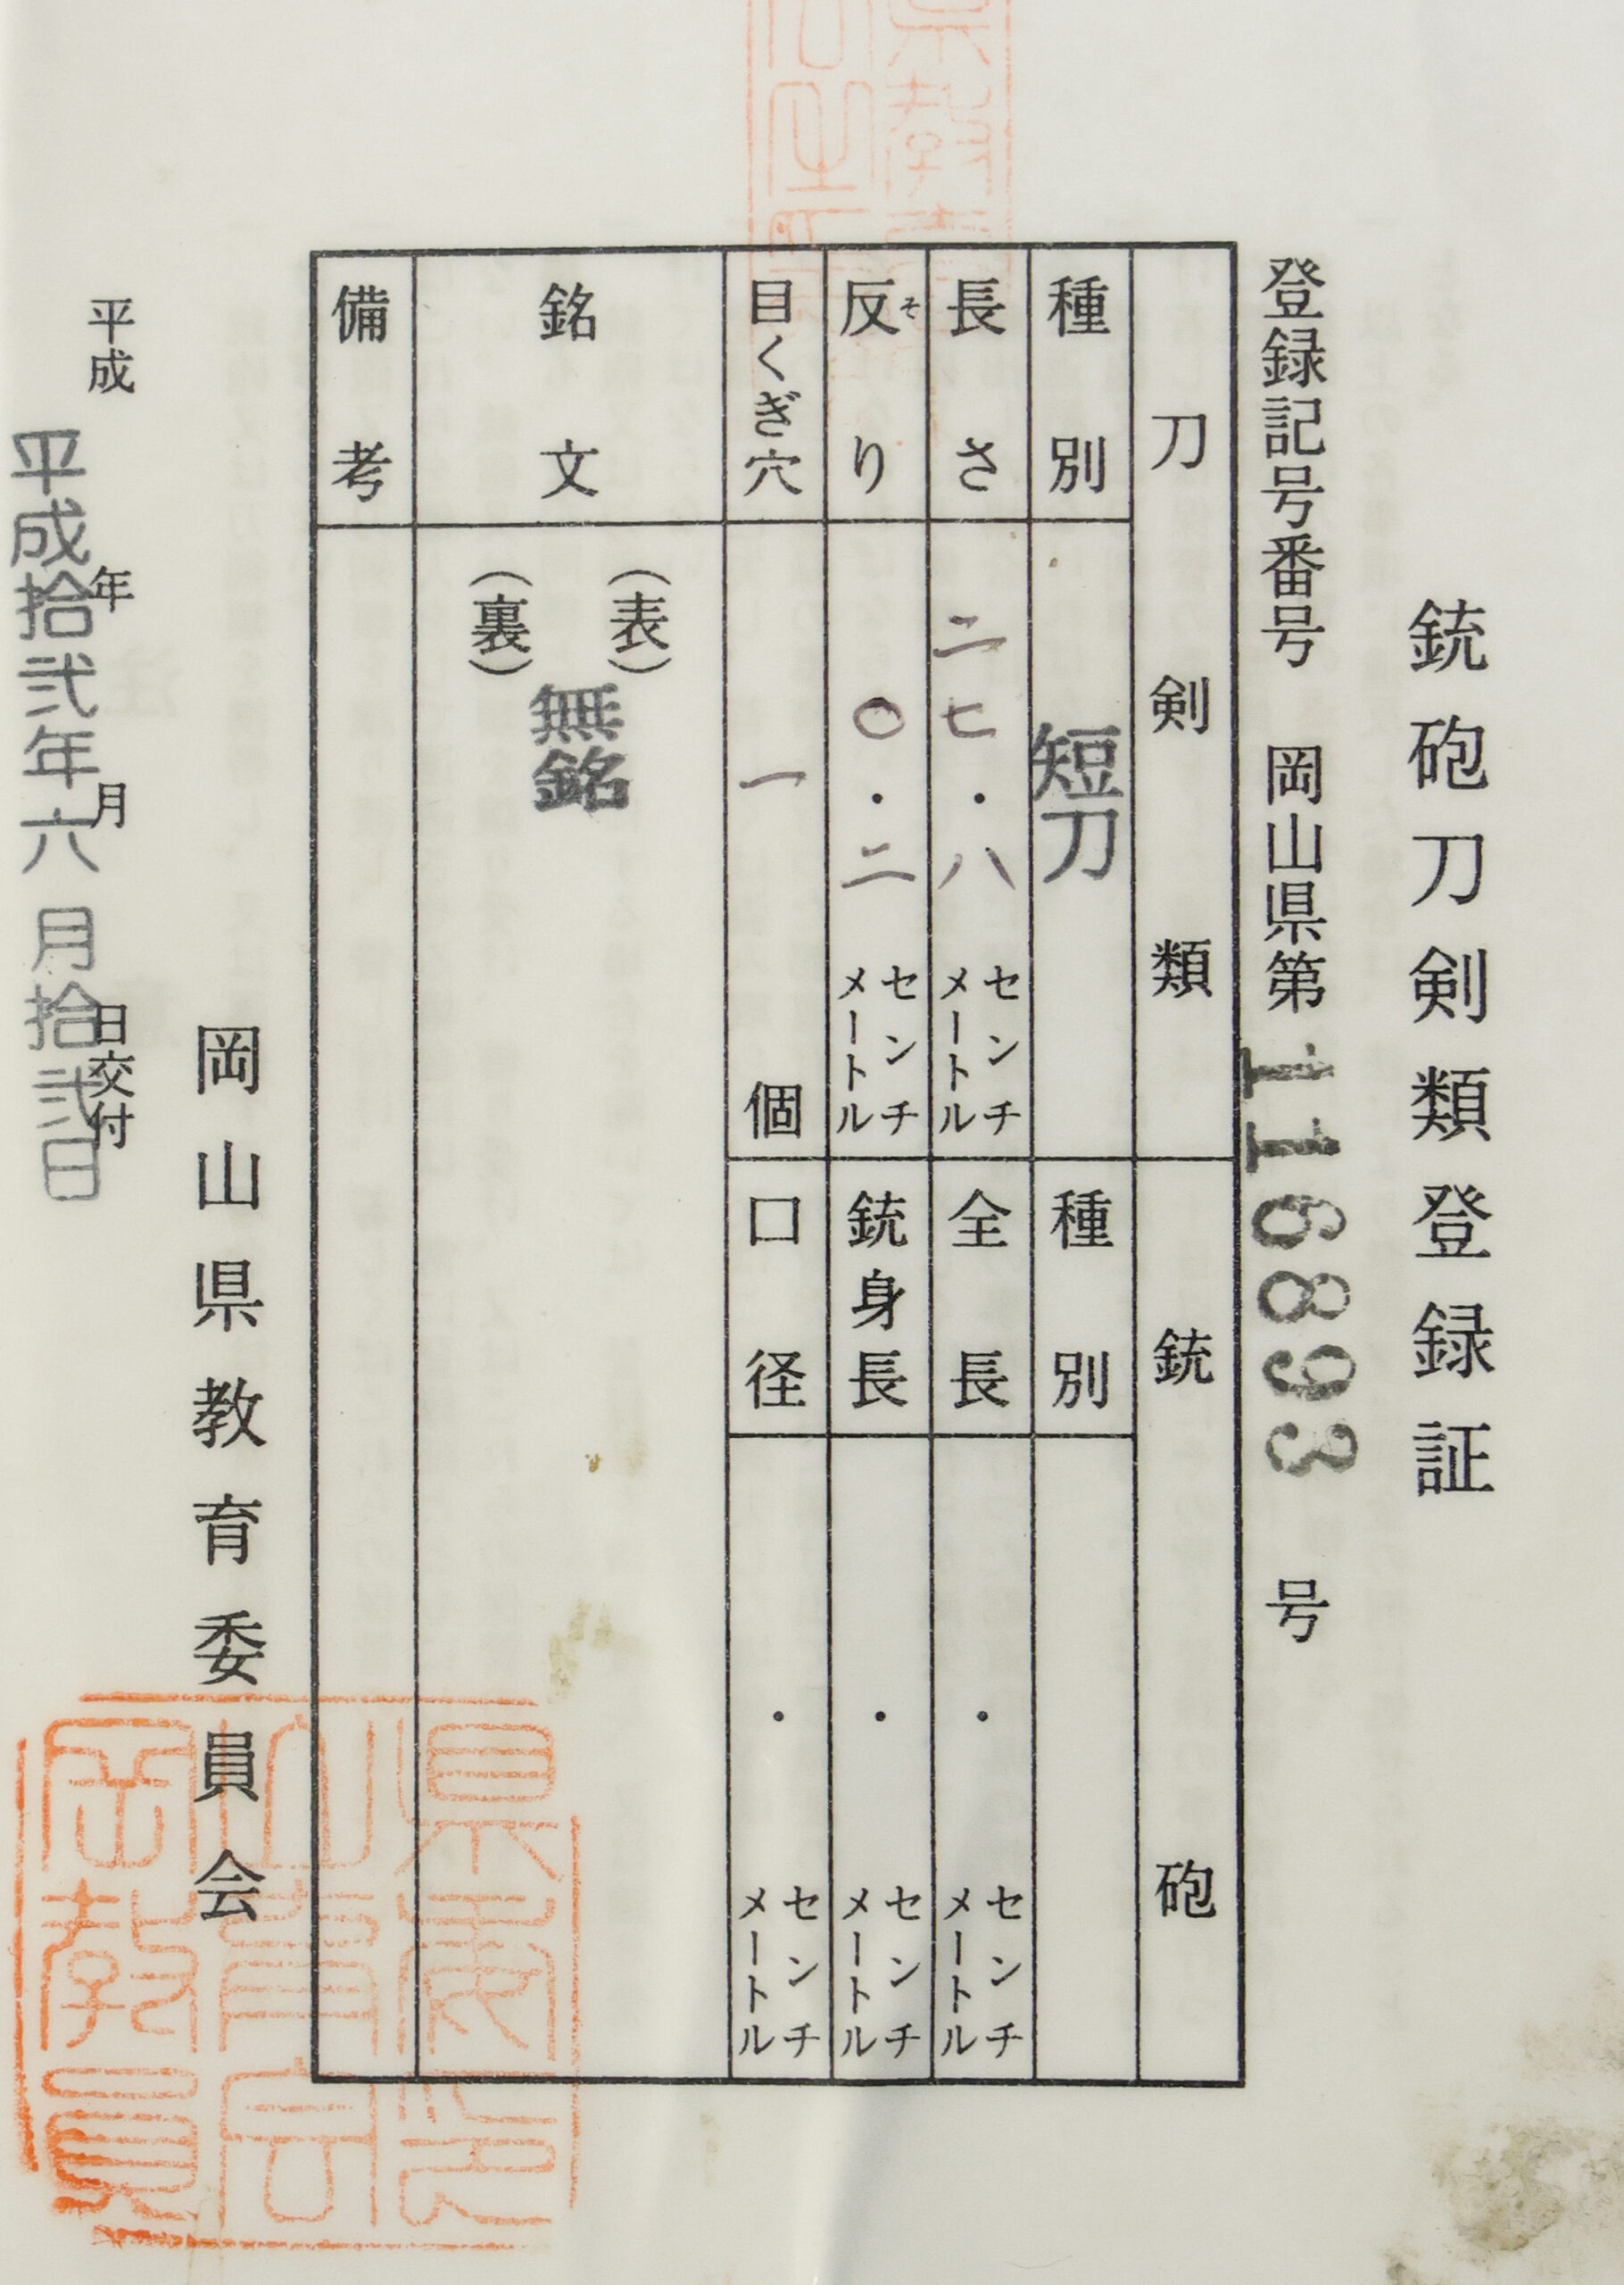 銃砲刀剣類登録証
登録記号番号 岡山県第116893号
刀剣類
種別 短刀
長さ 二七・八 センチメートル
反り そ 〇・二 センチメートル
目くぎ穴 一 個
銃砲
種別
全長 ・ センチメートル
銃身長 ・ センチメートル
口径 ・ センチメートル
銘文
(表)
無銘
(裏)
備考
岡山県教育委員会
平成 年 月 日交付
平成拾弐年六月拾弐日